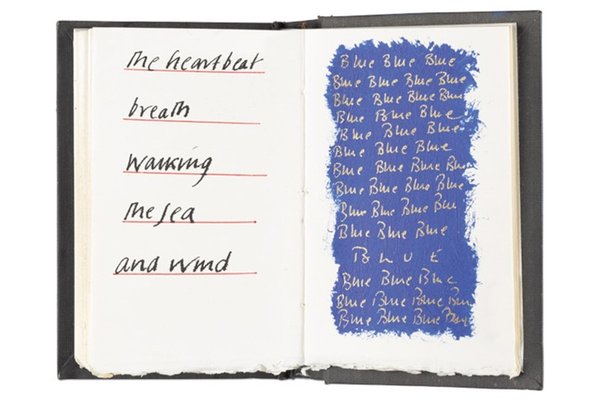 The heartbeat
breath
walking
The sea
and wind
Blue Blue Blue
Blue Blue Blue Blue
Blue Blue Blue Blue
Blue Blue Blue
Blue Blue Blue
Blue Blue Blue
Blue Blue Blue Blue
Blue Blue Blue Blue
Blue Blue Blue Blue
Blue Blue Blue
B L U E
Blue Blue Blue
Blue Blue Blue Blue
Blue Blue Blue Blue